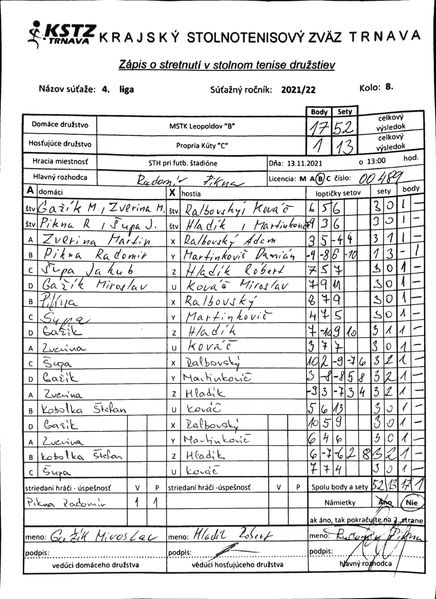 KSTZ TRNAVA KRAJSKÝ STOLNOTENISOVÝ ZVÄZ TRNAVA
Zápis o stretnutí v stolnom tenise družstiev
Názov súťaže: 4. liga Súťažný ročník: 2021/22 Kolo: 8.
Body Sety celkový
Domáce družstvo MSTK Leopoldov "B" 17 52 výsledok
Hosťujúce družstvo Propria Kúty "C" 1 13 celkový výsledok
Hracia miestnosť STH pri futb. štadióne Dňa: 13.11.2021 o 13:00 hod.
Hlavný rozhodca Radomír Pikna Licencia: M A B C číslo: 00489
A domáci X hostia loptičky setov sety body
štv Gažík M, Zverina M. štv Ralbovský, Kováč 6 5 6 3 0 1 -
štv Pikna R, Šupa J. štv Hladík, Martinkovič 9 3 6 3 0 1 -
A Zverina Martin X Ralbovský Adam 3 5 -4 4 3 1 1 -
B Pikna Radomír Y Martinkovič Damián -9 -8 6 -10 1 3 - 1
C Šupa Jakub Z Hladík Róbert 7 5 7 3 0 1 -
D Gažík Miroslav U Kováč Miroslav 7 9 11 3 0 1 -
B Pikna X Ralbovský 8 7 9 3 0 1 -
C Šupa Y Martinkovič 4 7 5 3 0 1 -
D Gažík Z Hladík 7 -10 9 10 3 1 1 -
A Zverina U Kováč 3 7 7 3 0 1 -
C Šupa X Ralbovský 10 2 -9 -7 6 3 2 1 -
D Gažík Y Martinkovič 3 -8 -8 5 8 3 2 1 -
A Zverina Z Hladík -3 3 -7 3 4 3 2 1 -
B Kobolka Štefan U Kováč 5 6 13 3 0 1 -
D Gažík X Ralbovský 10 5 9 3 0 1 -
A Zverina Y Martinkovič 6 4 6 3 0 1 -
B Kobolka Štefan Z Hladík 6 -7 -6 2 8 3 2 1 -
C Šupa U Kováč 7 7 4 3 0 1 -
striedaní hráči - úspešnosť V P striedaní hráči - úspešnosť V P Spolu body a sety 52 13 17 1
Pikna Radomír 1 1 Námietky Áno Nie
ak áno, tak pokračujte na 2. strane
meno: Gažík Miroslav meno: Hladík Róbert meno: Radomír Pikna
podpis: podpis: podpis:
vedúci domáceho družstva vedúci hosťujúceho družstva hlavný rozhodca